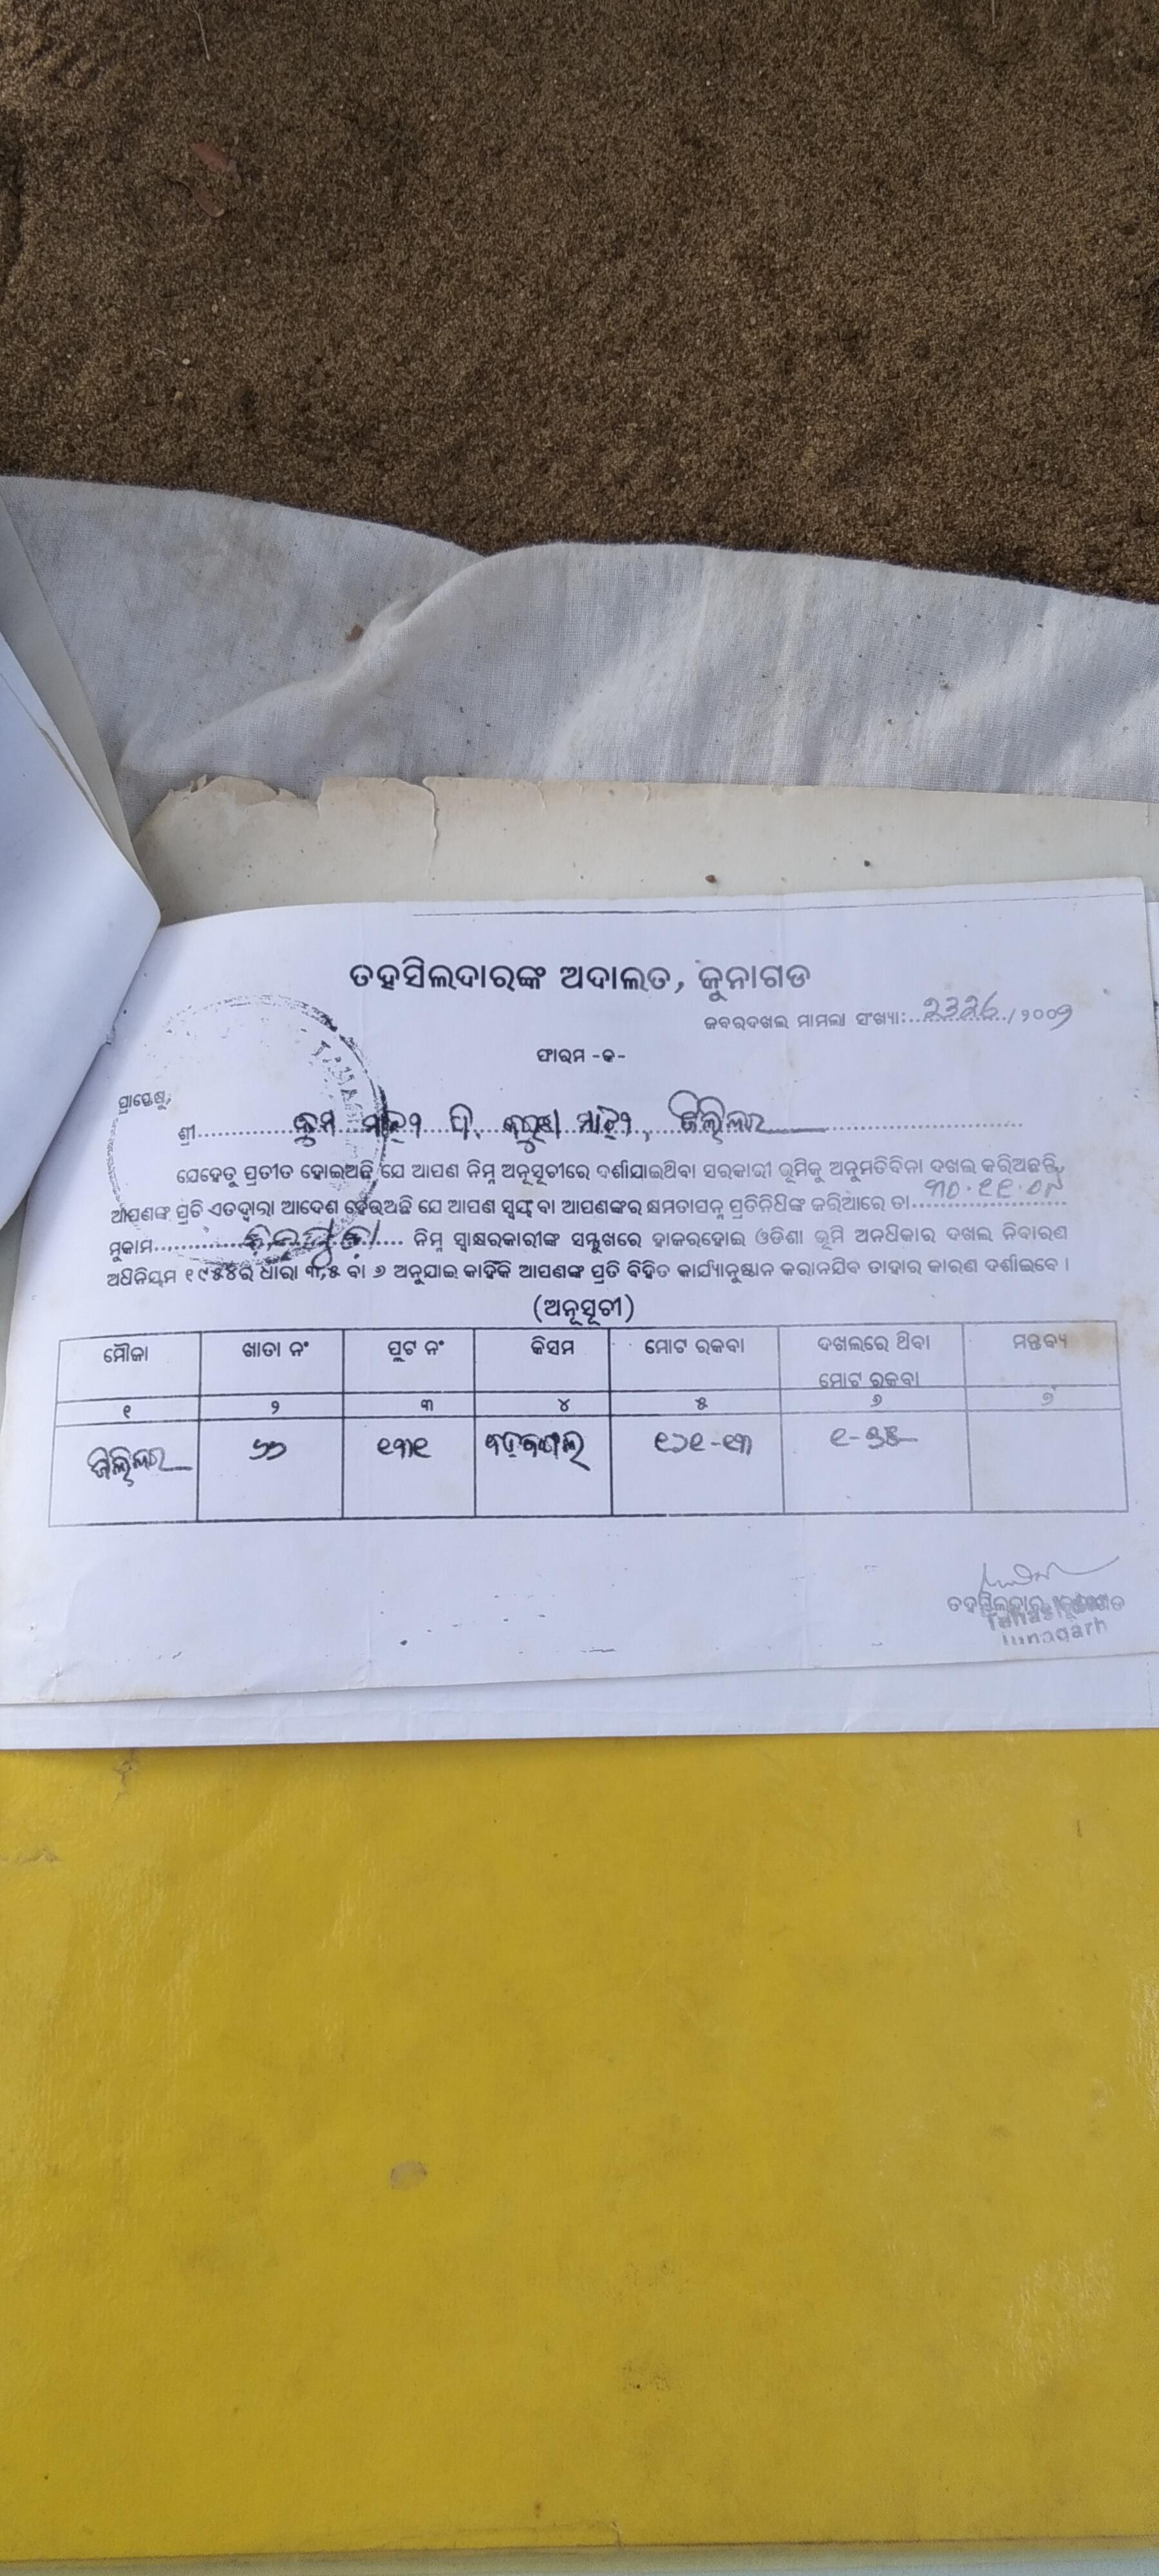 ତହସିଲଦାରଙ୍କ ଅଦାଲତ, ଜୁନାଗଡ
ଜବରଦଖଲ ମାମଲା ସଂଖ୍ୟା:................/୨୦୦୬
ଫାରମ -କ-
ପ୍ରାପ୍ତେଷୁ,
ଶ୍ରୀ.................... ମାଝୀ ପି. ............ ମାଝୀ, ....................
ଯେହେତୁ ପ୍ରତୀତ ହୋଇଅଛି ଯେ ଆପଣ ନିମ୍ନ ଅନୁସୂଚୀରେ ଦର୍ଶାଯାଇଥିବା ସରକାରୀ ଭୂମିକୁ ଅନୁମତିବିନା ଦଖଲ କରିଅଛନ୍ତି,
ଆପଣଙ୍କ ପ୍ରତି ଏତଦ୍ଵାରା ଆଦେଶ ହେଉଅଛି ଯେ ଆପଣ ସ୍ଵୟଂ ବା ଆପଣଙ୍କର କ୍ଷମତାପନ୍ନ ପ୍ରତିନିଧିଙ୍କ ଜରିଆରେ ତା....୩୦.୧୧.୦୬
ମୁକାମ.................... ନିମ୍ନ ସ୍ୱାକ୍ଷରକାରୀଙ୍କ ସମ୍ମୁଖରେ ହାଜରହୋଇ ଓଡିଶା ଭୂମି ଅନଧିକାର ଦଖଲ ନିବାରଣ
ଅଧିନିୟମ ୧୯୫୪ର ଧାରା ୩,୫ ବା ୬ ଅନୁଯାଇ କାହିଁକି ଆପଣଙ୍କ ପ୍ରତି ବିହିତ କାର୍ଯ୍ୟାନୁଷ୍ଠାନ କରାନଯିବ ତାହାର କାରଣ ଦର୍ଶାଇବେ ।
(ଅନୁସୂଚୀ)
ମୌଜା ଖାତା ନଂ ପ୍ଲଟ ନଂ କିସମ ମୋଟ ରକବା ଦଖଲରେ ଥିବା ମନ୍ତବ୍ୟ
ମୋଟ ରକବା
୧ ୨ ୩ ୪ ୫ ୬ ୭
୭୭ ୧୩୧
ତହସିଲଦାର, ଜୁନାଗଡ
Tahasildar
Junagarh